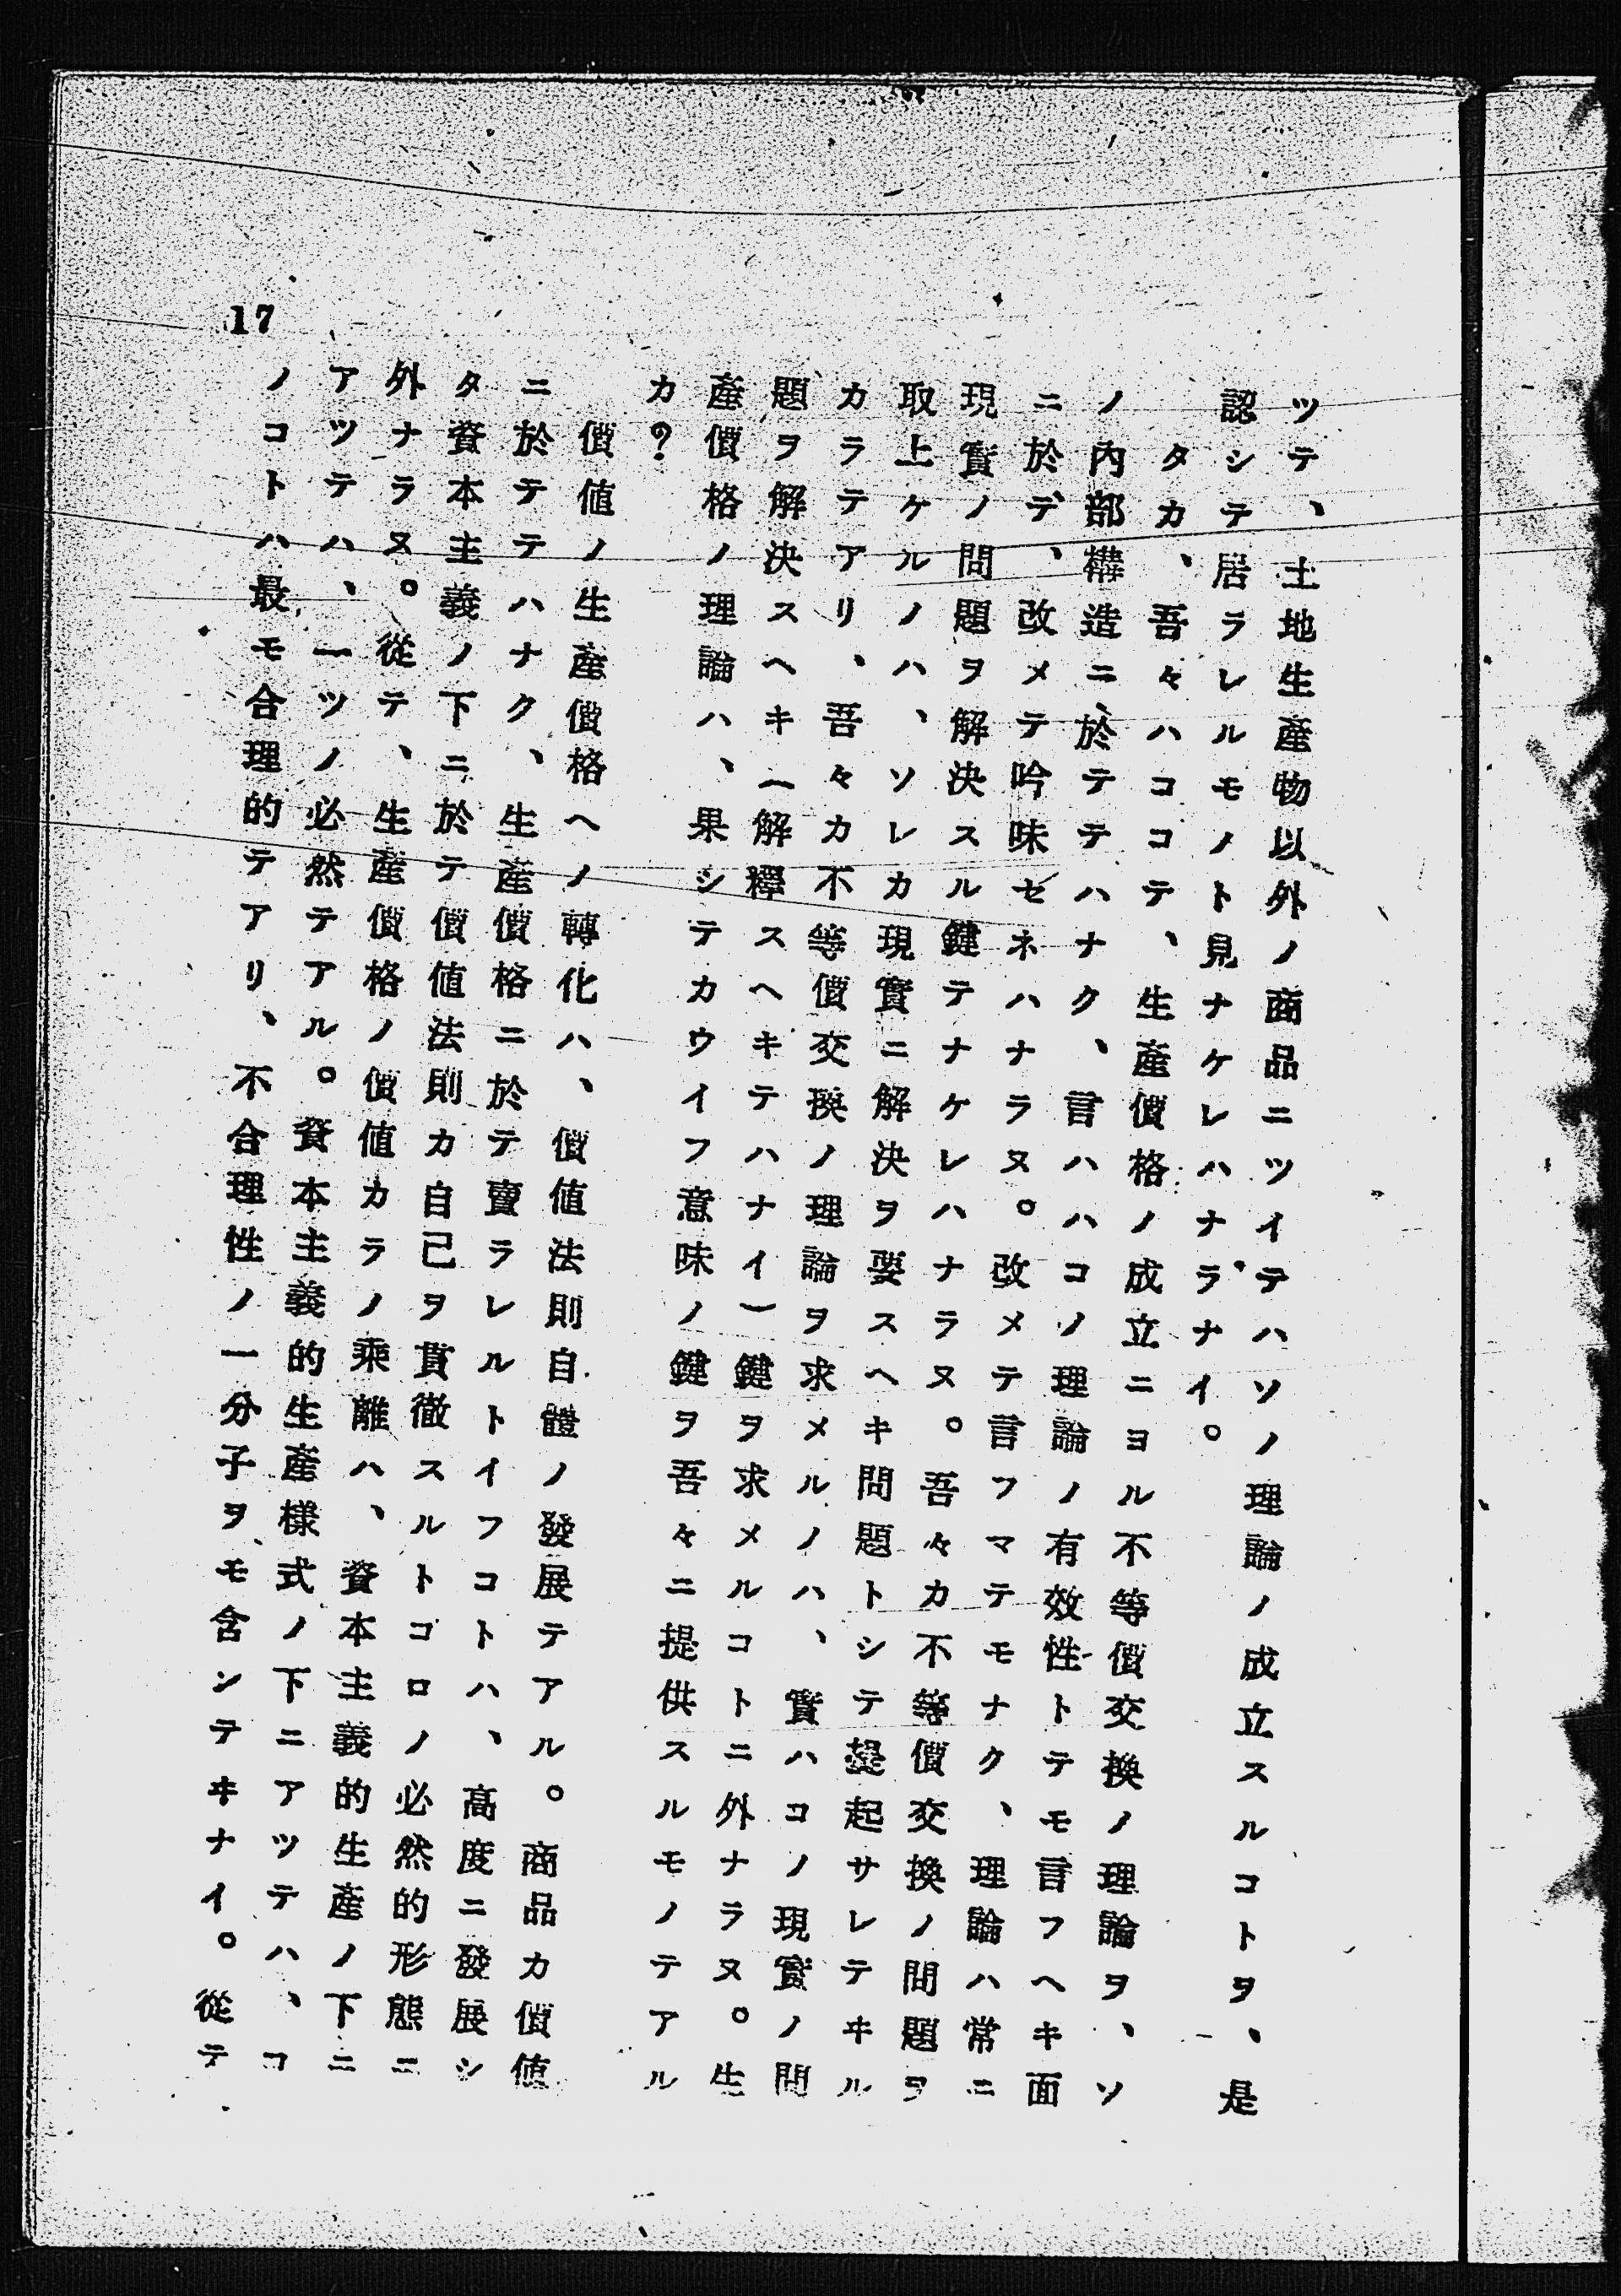 ツテ、土地生產物以外ノ商品ニツイテハソノ理論ノ成立スルコトヲ、是
認シテ居ラレルモノト見ナケレハナラナイ。
タカ、吾々ハココテ、生產價格ノ成立ニヨル不等價交換ノ理論ヲ、ソ
ノ內部構造ニ於テテハナク、言ハハコノ理論ノ有效性トテモ言フヘキ面
ニ於デ、改メテ吟味セネハナラヌ。改メテ言フマテモナク、理論ハ常ニ
現實ノ問題ヲ解決スル鍵テナケレハナラヌ。吾々カ不等價交換ノ問題ヲ
取上ケルノハ、ソレカ現實ニ解決ヲ要スヘキ問題トシテ提起サレテヰル
カラテアリ、吾々カ不等價交換ノ理論ヲ求メルノハ、實ハコノ現實ノ問
題ヲ解決スヘキ(解釋スヘキテハナイ)鍵ヲ求メルコトニ外ナラヌ。生
產價格ノ理論ハ、果シテカウイフ意味ノ鍵ヲ吾々ニ提供スルモノテアル
カ?
價値ノ生產價格ヘノ轉化ハ、價値法則自體ノ發展テアル。商品カ價値
ニ於テテハナク、生產價格ニ於テ賣ラレルトイフコトハ、高度ニ發展シ
タ資本主義ノ下ニ於テ價値法則カ自己ヲ貫徹スルトコロノ必然的形態ニ
外ナラヌ。從テ、生產價格ノ價値カラノ乘離ハ、資本主義的生產ノ下ニ
アツテハ、一ツノ必然テアル。資本主義的生產樣式ノ下ニアツテハ、コ
ノコトハ最モ合理的テアリ、不合理性ノ一分子ヲモ含ンテヰナイ。從テ
17